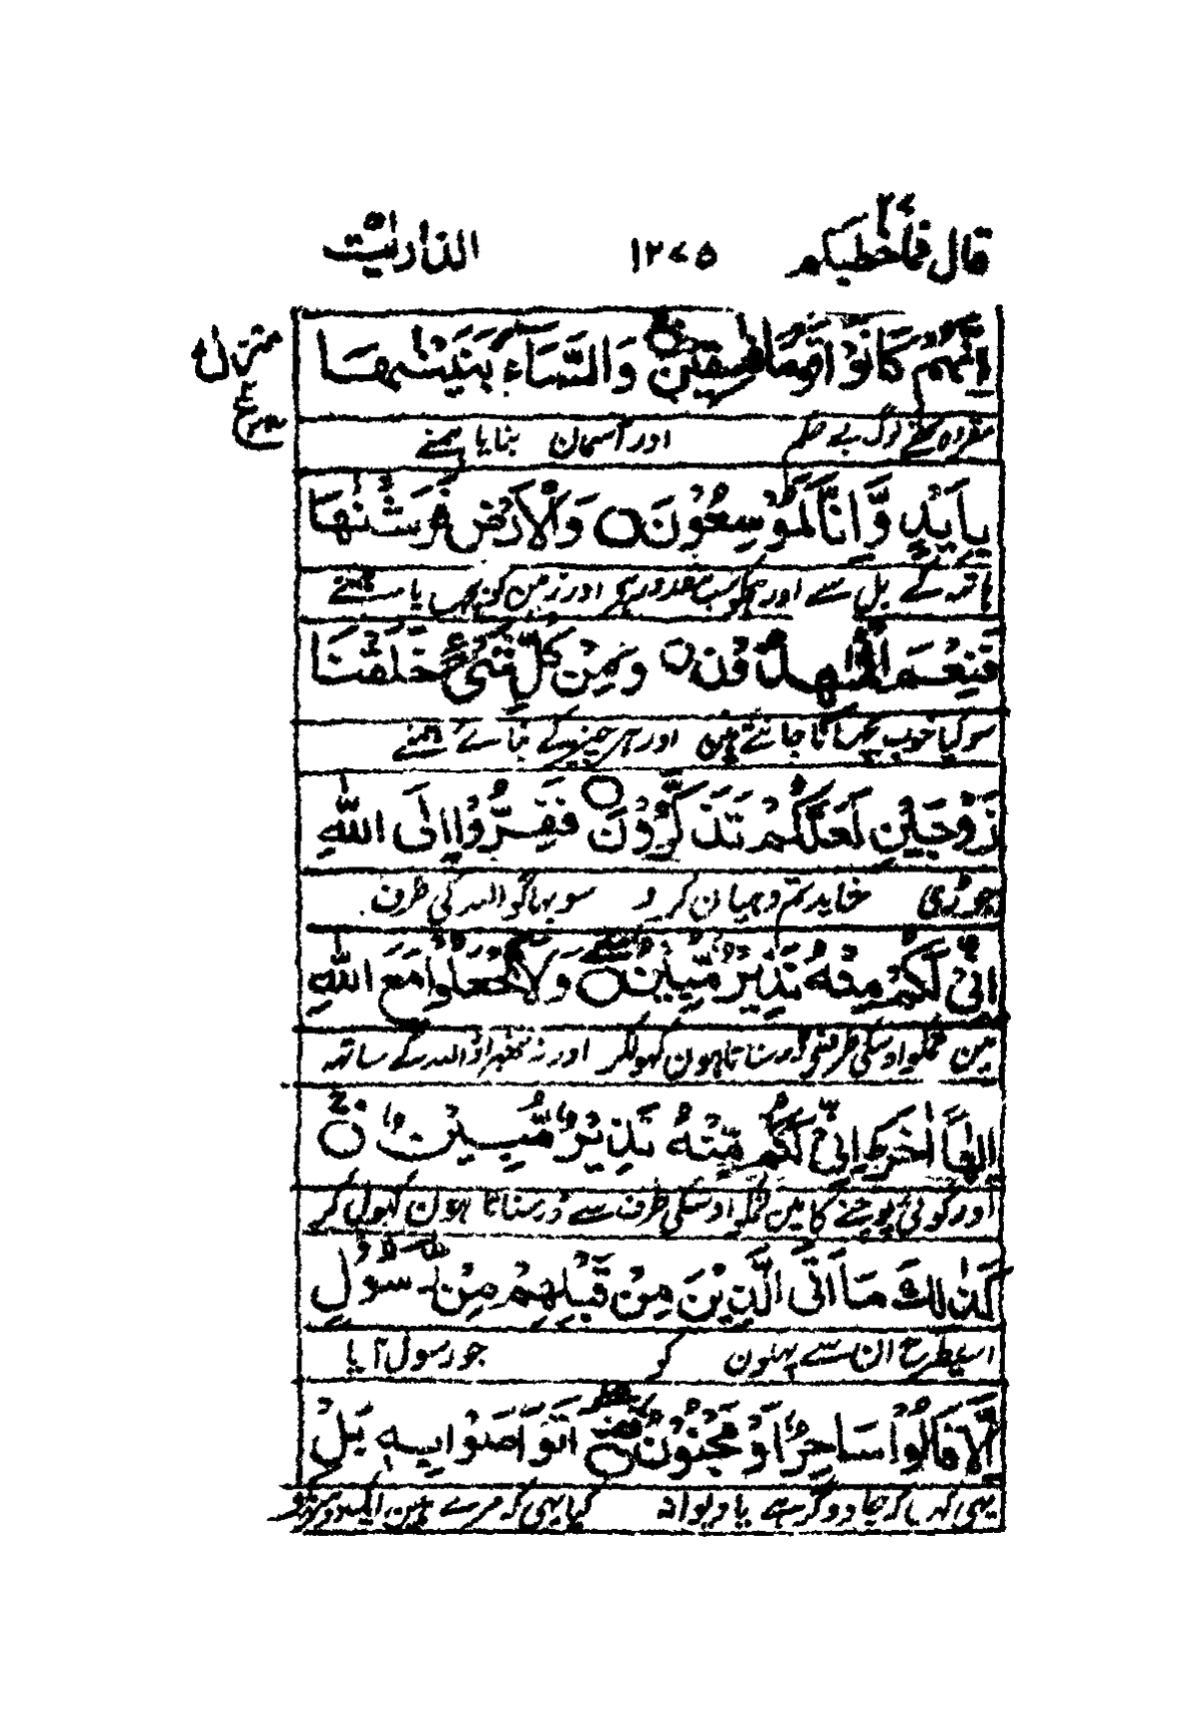 قال فماخطبكم ٢٧ ١٢٧٥ الذاريت ٥١
منزل
إِنَّهُمْ كَانُوْا قَوْمًا فٰسِقِيْنَ ○ وَالسَّمَاءَ بَنَيْنٰهَا
تھے لوگ بے حکم اور آسمان بنایا ہمنے
بِاَيْدٍ وَّاِنَّا لَمُوْسِعُوْنَ ○ وَالْاَرْضَ فَرَشْنٰهَا
ہاتھ کے بل سے اور ہمکو سب مقدور ہے اور زمین کو بچھایا ہمنے
فَنِعْمَ الْمٰهِدُوْنَ ○ وَمِنْ كُلِّ شَيْءٍ خَلَقْنَا
سو کیا خوب بچھانا جانتے ہین اور ہر چیز کے بنائے ہمنے
زَوْجَيْنِ لَعَلَّكُمْ تَذَكَّرُوْنَ ○ فَفِرُّوْا اِلَى اللّٰهِ
جوڑی شاید تم دہیان کرو سو بہاگو اللہ کی طرف
اِنِّيْ لَكُمْ مِنْهُ نَذِيْرٌ مُّبِيْنٌ ○ وَلَا تَجْعَلُوْا مَعَ اللّٰهِ
مین تمکو اوسکی طرف سے ڈر سناتا ہون کہولکر اور نہ ٹھہراؤ اللہ کے ساتھ
اِلٰهًا اٰخَرَ اِنِّيْ لَكُمْ مِّنْهُ نَذِيْرٌ مُّبِيْنٌ ○
اور کوئی پوجنے کا مین تمکو اوسکی طرف سے ڈر سناتا ہون کہول کر
كَذٰلِكَ مَا اَتَى الَّذِيْنَ مِنْ قَبْلِهِمْ مِنْ رَسُوْلٍ
اسیطرح ان سے پہلون کو جو رسول آیا
اِلَّا قَالُوْا سَاحِرٌ اَوْ مَجْنُوْنٌ ○ اَتَوَاصَوْا بِهٖ بَلْ
یہی کہا کہ جادوگر ہے یا دیوانہ کیا یہی کہ مرے ہین ایکدوسریکو